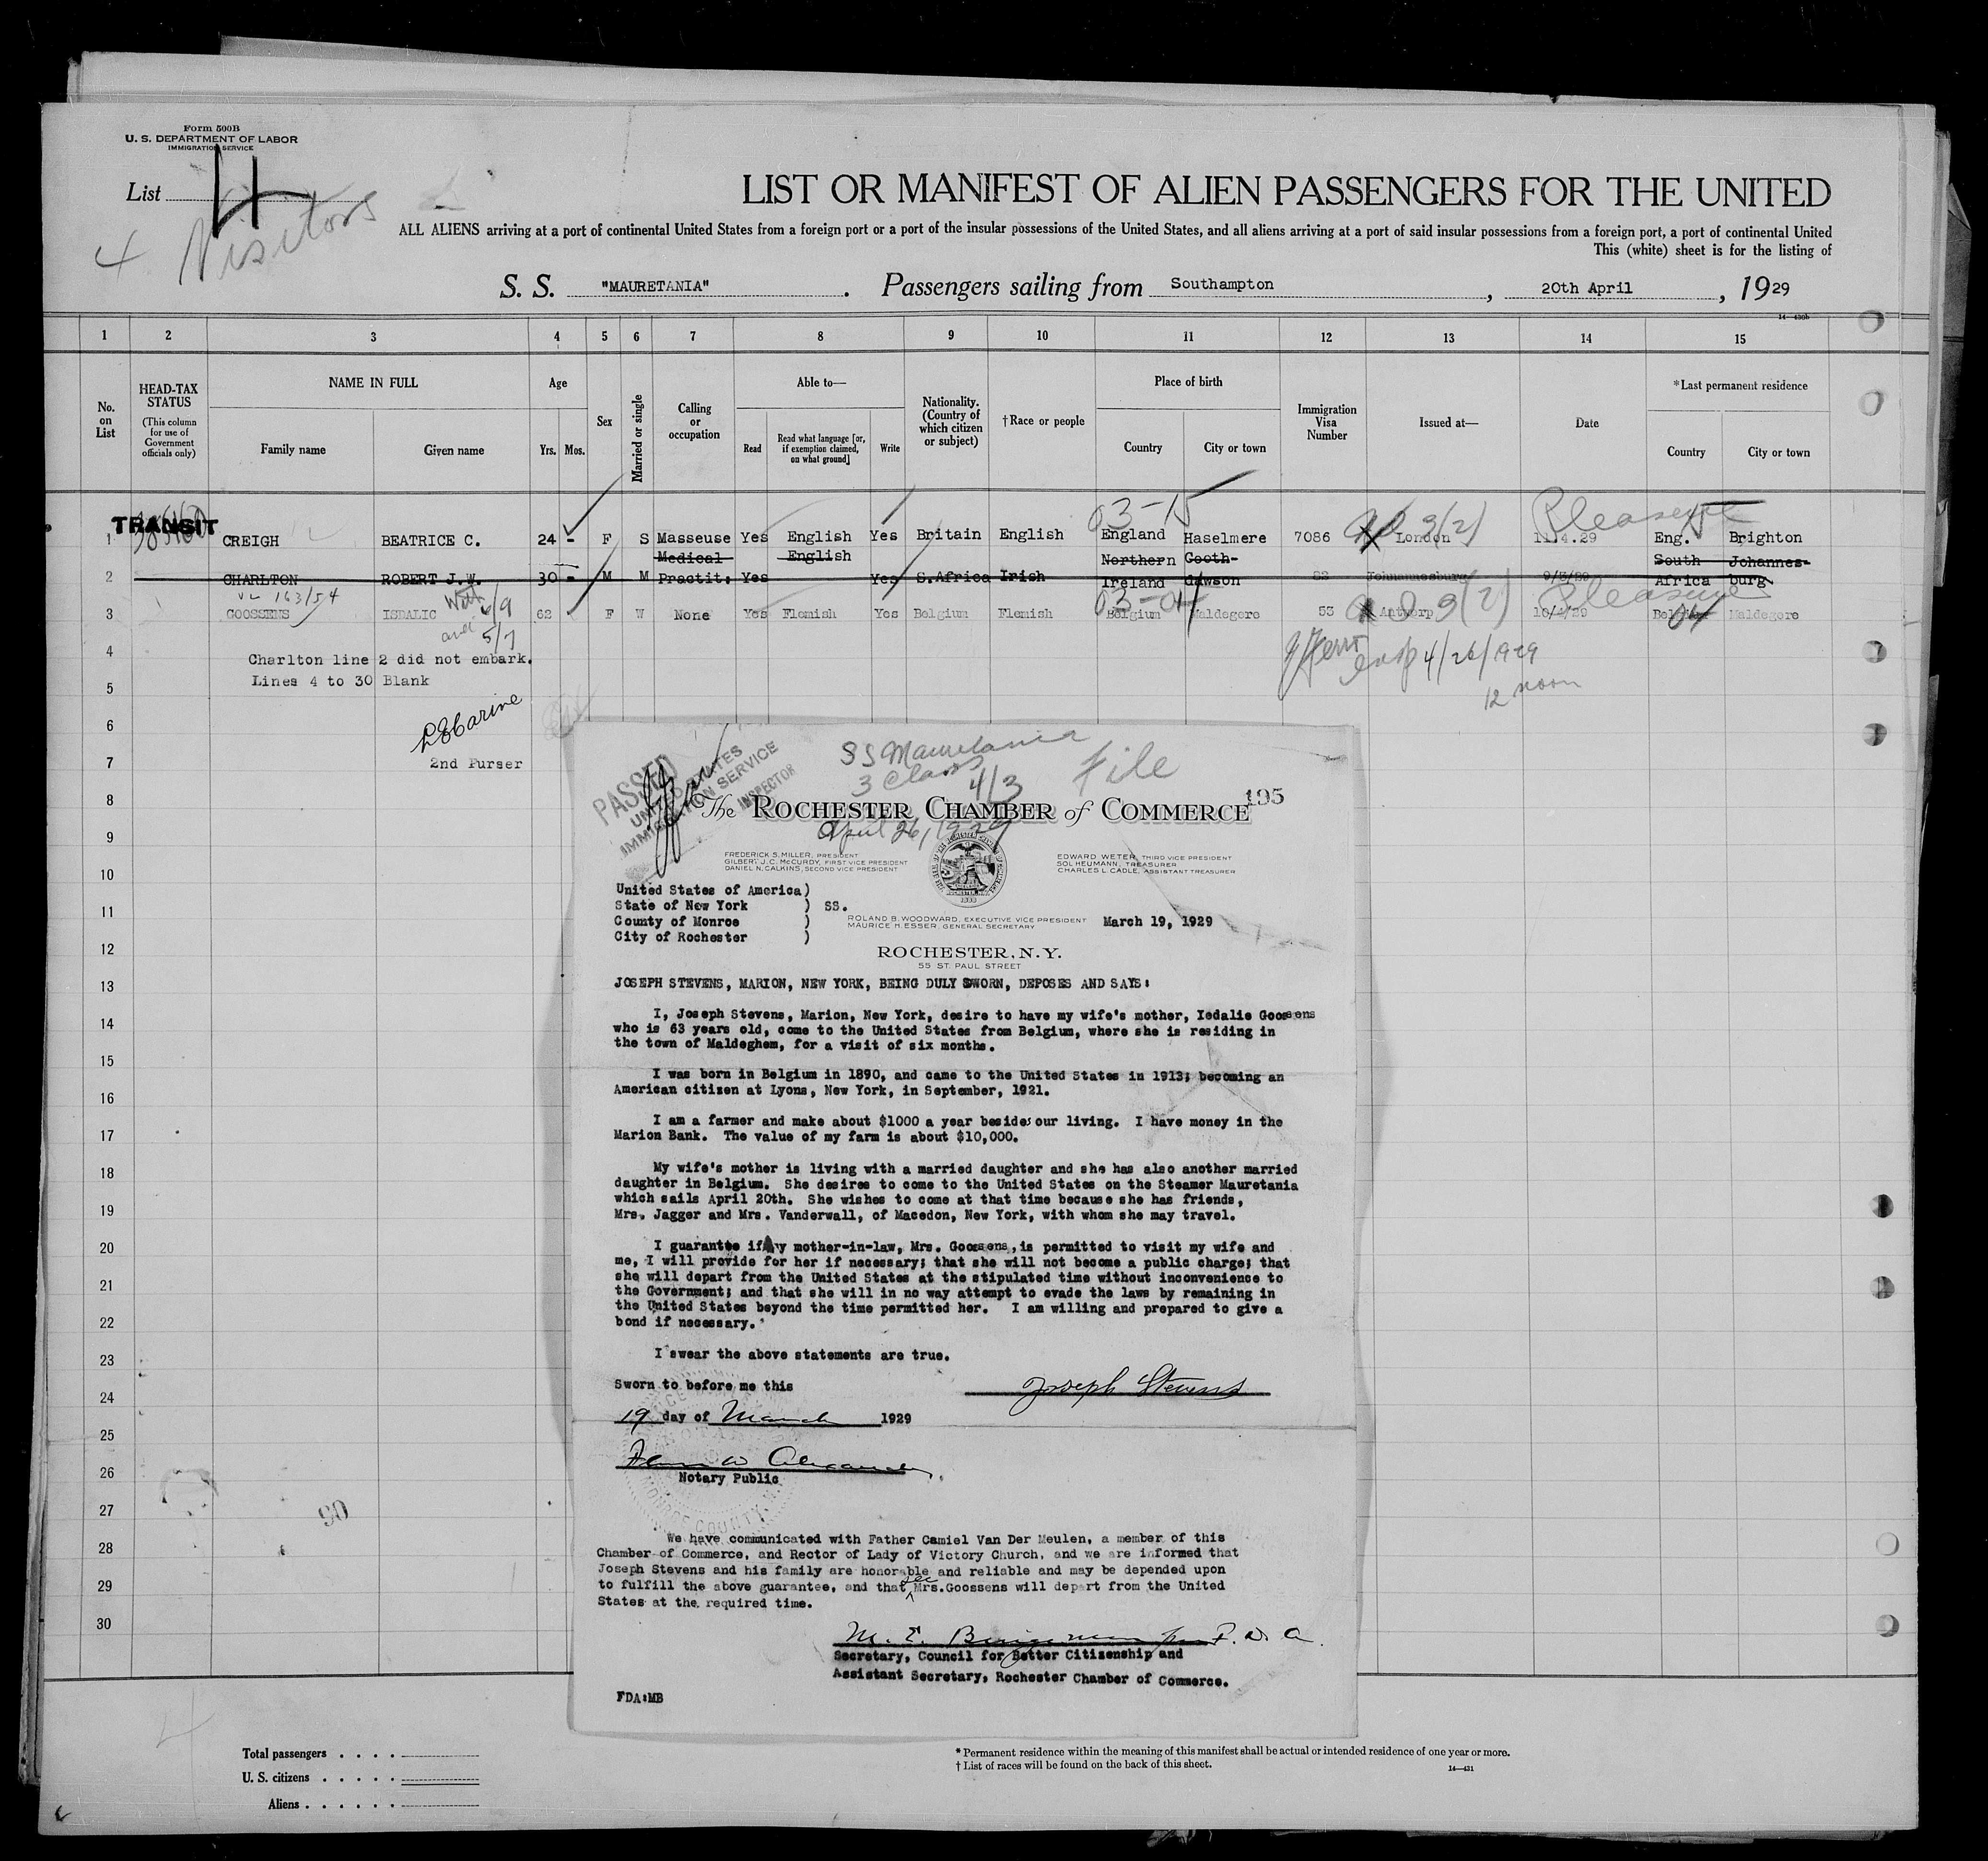 Form 500B
U. S. DEPARTMENT OF LABOR
IMMIGRATION SERVICE
List 4
4 Visitors
LIST OR MANIFEST OF ALIEN PASSENGERS FOR THE UNITED
ALL ALIENS arriving at a port of continental United States from a foreign port or a port of the insular possessions of the United States, and all aliens arriving at a port of said insular possessions from a foreign port, a port of continental United
This (white) sheet is for the listing of
S. S. "MAURETANIA". Passengers sailing from Southampton, 20th April, 1929
14—430b
1 2 3 4 5 6 7 8 9 10 11 12 13 14 15
No. on List
HEAD-TAX STATUS (This column for use of Government officials only)
NAME IN FULL
Family name Given name
Age
Yrs. Mos.
Sex
Married or single
Calling or occupation
Able to—
Read Read what language [or, if exemption claimed, on what ground] Write
Nationality. (Country of which citizen or subject)
†Race or people
Place of birth
Country City or town
Immigration Visa Number
Issued at—
Date
*Last permanent residence
Country City or town
03-15 3(2) Pleasure
TRANSIT
1 CREIGH BEATRICE C. 24 - F S Masseuse Yes English Yes Britain English England Haselmere 7086 London 11.4.29 Eng. Brighton
Medical English Northern Cooth- South Johannes-
2 CHARLTON ROBERT J.W. 30 - M M Practit: Yes Yes S.Africa Irish Ireland dawson 82 Johannesburg 9/3/29 Africa burg
163/54 With 6/9 03-04 3(2) Pleasure
3 GOOSSENS ISDALIC 62 F W None Yes Flemish Yes Belgium Flemish Belgium Maldegere 53 Antwerp 10/4/29 Belgium Maldegere
and 5/7 04
4 Charlton line 2 did not embark.
5 Lines 4 to 30 Blank
insp 4/26/1929
12 noon
6
7 2nd Purser
8
9
10
11
12
13
14
15
16
17
18
19
20
21
22
23
24
25
26
27
28
29
30
90
PASSED
UNITED STATES
IMMIGRATION SERVICE
INSPECTOR
SS Mauretania
3 Class 4/3
File
195
The ROCHESTER CHAMBER of COMMERCE
April 26, 1929
FREDERICK S. MILLER, PRESIDENT
GILBERT J. C. McCURDY, FIRST VICE PRESIDENT
DANIEL N. CALKINS, SECOND VICE PRESIDENT
EDWARD WETER, THIRD VICE PRESIDENT
SOL HEUMANN, TREASURER
CHARLES L. CADLE, ASSISTANT TREASURER
United States of America)
State of New York ) SS.
County of Monroe )
City of Rochester )
ROLAND B. WOODWARD, EXECUTIVE VICE PRESIDENT
MAURICE H. ESSER, GENERAL SECRETARY
March 19, 1929
ROCHESTER, N.Y.
55 ST. PAUL STREET
JOSEPH STEVENS, MARION, NEW YORK, BEING DULY SWORN, DEPOSES AND SAYS:
I, Joseph Stevens, Marion, New York, desire to have my wife's mother, Iedalie Goossens
who is 63 years old, come to the United States from Belgium, where she is residing in
the town of Maldeghem, for a visit of six months.
I was born in Belgium in 1890, and came to the United States in 1913; becoming an
American citizen at Lyons, New York, in September, 1921.
I am a farmer and make about $1000 a year besides our living. I have money in the
Marion Bank. The value of my farm is about $10,000.
My wife's mother is living with a married daughter and she has also another married
daughter in Belgium. She desires to come to the United States on the Steamer Mauretania
which sails April 20th. She wishes to come at that time because she has friends,
Mrs. Jagger and Mrs. Vanderwall, of Macedon, New York, with whom she may travel.
I guarantee if my mother-in-law, Mrs. Goossens, is permitted to visit my wife and
me, I will provide for her if necessary; that she will not become a public charge; that
she will depart from the United States at the stipulated time without inconvenience to
the Government; and that she will in no way attempt to evade the laws by remaining in
the United States beyond the time permitted her. I am willing and prepared to give a
bond if necessary.
I swear the above statements are true.
Sworn to before me this Joseph Stevens
19 day of March 1929
Notary Public
We have communicated with Father Camiel Van Der Meulen, a member of this
Chamber of Commerce, and Rector of Lady of Victory Church, and we are informed that
Joseph Stevens and his family are honorable and reliable and may be depended upon
to fulfill the above guarantee, and that see Mrs.Goossens will depart from the United
States at the required time.
M. E. F. D. A.
Secretary, Council for Better Citizenship and
Assistant Secretary, Rochester Chamber of Commerce.
FDA:MB
Total passengers
U. S. citizens
Aliens
* Permanent residence within the meaning of this manifest shall be actual or intended residence of one year or more.
† List of races will be found on the back of this sheet.
14—431